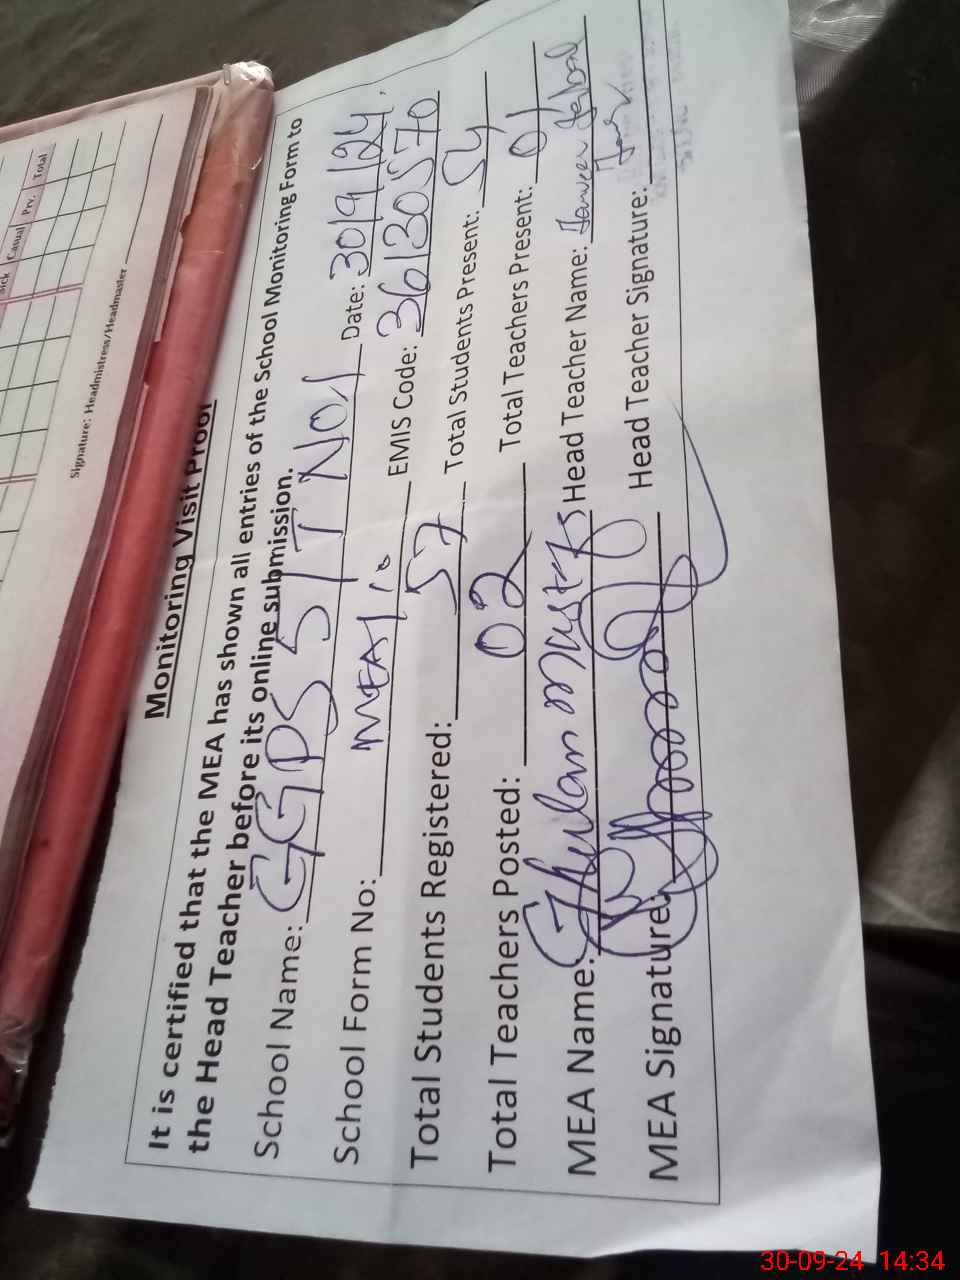 Sick Casual Prv. Total
Signature: Headmistress/Headmaster
Monitoring Visit Proof
It is certified that the MEA has shown all entries of the School Monitoring Form to
the Head Teacher before its online submission.
School Name: GGPS 5/T NO1 Date: 30/9/24
School Form No: MEA/10 EMIS Code: 36130570
Total Students Registered: 57 Total Students Present: 54
Total Teachers Posted: 02 Total Teachers Present: 01
MEA Name: Ghulam Mustafa Head Teacher Name:
MEA Signature: Head Teacher Signature:
30-09-24 14:34